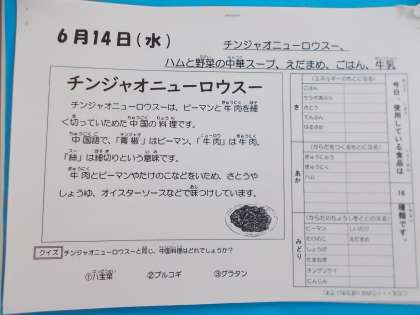 6月14日(水)
チンジャオニューロウスー、
ハムと野菜の中華スープ、えだまめ、ごはん、牛乳
チンジャオニューロウスー
チンジャオニューロウスーは、ピーマンと牛肉を細
く切っていためた中国の料理です。
中国語で、「青椒」はピーマン、「牛肉」は牛肉、
「絲」は細切りという意味です。
牛肉とピーマンやたけのこなどをいため、さとうや
しょうゆ、オイスターソースなどで味つけしています。
クイズ チンジャオニューロウスーと同じ、中国料理はどれでしょうか?
①八宝菜 ②プルコギ ③グラタン
今日、使用している食品は
16
種類です。
き
(エネルギーのもとになる)
ごはん
さとう
でんぷん
はるさめ
あか
(からだをつくるもとになる)
ぎゅうにゅう
ぎゅうにく
ハム
みどり
(からだのちょうしをととのえる)
ピーマン しいたけ
たけのこ えだまめ
しょうが
たまねぎ
チンゲンサイ
にんじん